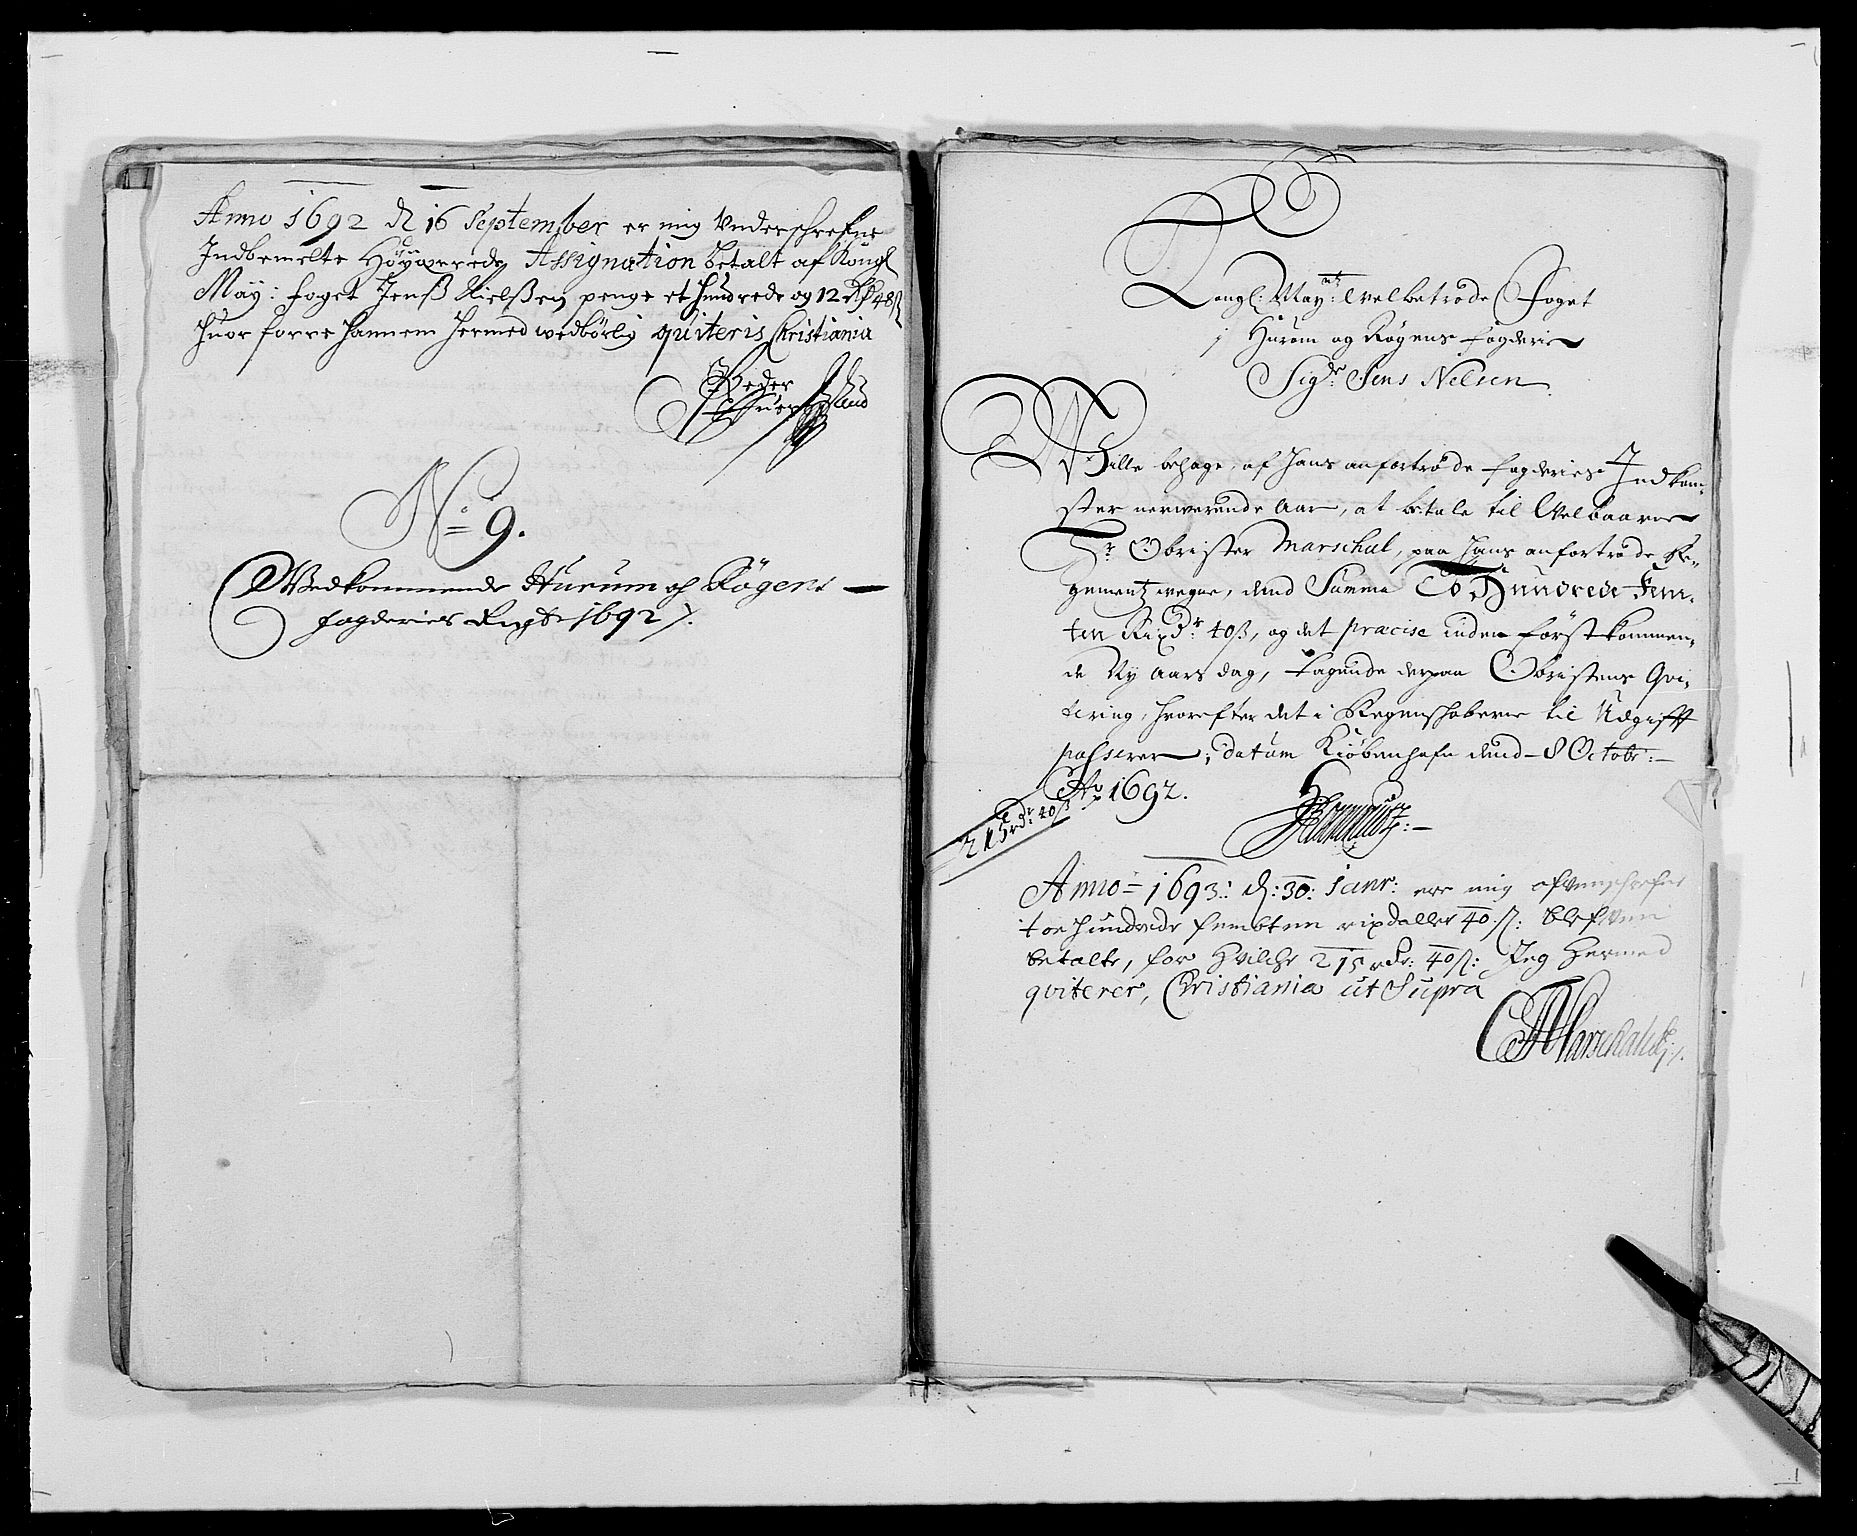 Anno 1692 d 16 September er mig Underschrefne
Indbemelte Höywerrede Assignation betalt af Kongl
May: foget Jenß Nielßen penge et hundrede og 12 Rd 48 ß
huor forre hannem hermed wedbörlig quiteris Christiania
Peder
No 9.
Wedkommende Hurum og Rögens
fogderies Regsk 1692 /.
Kongl: Maytz: Velbetrode Foget
i Hurum og Rögens fogderie
Sigr: Jens Nelsen
Wille behage, af hans anfortrode fogderies Indkom-
ster nerwerende Aar, at betale til Velbaarne
Hr Obrister Marschal, paa hans anfortrode Re-
gementz wegne, dend Summa To Hundrede Fem-
ten Rixdr 40ß, og det præcise inden förstkommen-
de Ny Aars dag, tagende derpaa Obristens Qvi-
tering, hvorefter det i Regenschaberne til Udgifft
passerer; datum Kiöbenhafn dend 8 Octobr:
Ao 1692.
215 rdr 40ß
Anno 1693: d: 30: Janr: ere mig ofvenschrefne
toe hundrede fembten rixdaller 40 ß: blefven
betalte, for hvilche 215 rdr: 40 ß: Jeg hermed
qviterer, Christiania ut Supra
Marschalck